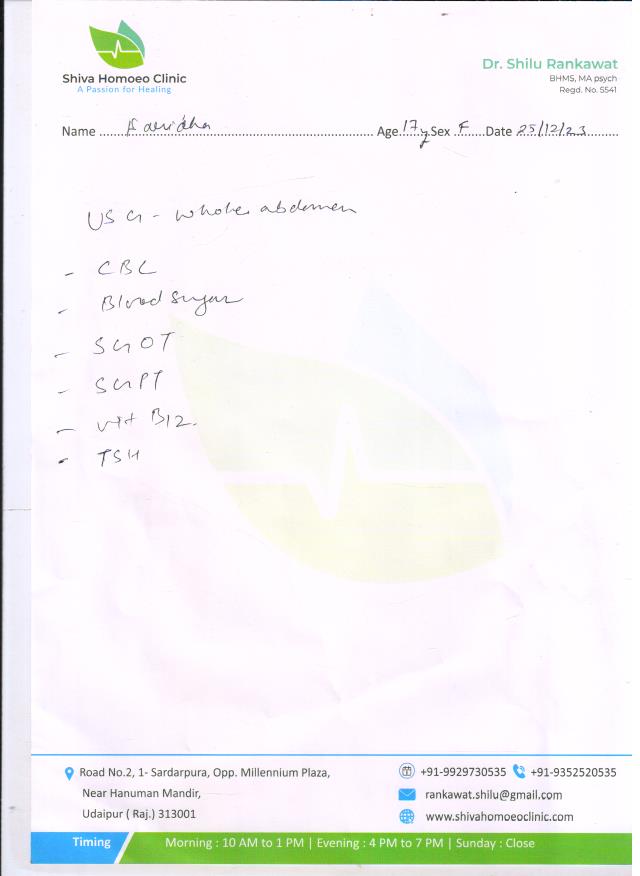 Shiva Homoeo Clinic
A Passion for Healing
Dr. Shilu Rankawat
BHMS, MA psych
Regd. No. 5541
Name ........ Age 17y Sex F Date 25/12/23
USG - whole abdomen
- CBC
- Blood Sugar
- SGOT
- SGPT
- Vit B12.
- TSH
Road No.2, 1- Sardarpura, Opp. Millennium Plaza,
Near Hanuman Mandir,
Udaipur ( Raj.) 313001
+91-9929730535 +91-9352520535
rankawat.shilu@gmail.com
www.shivahomoeoclinic.com
Timing Morning : 10 AM to 1 PM | Evening : 4 PM to 7 PM | Sunday : Close